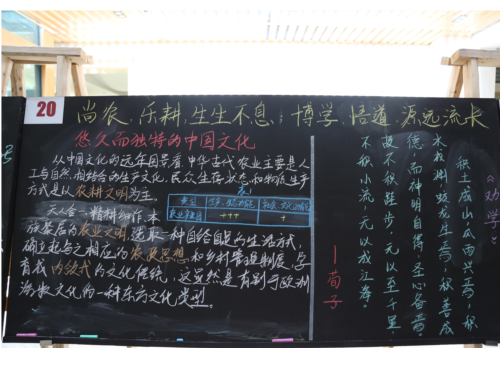 20
尚农,乐耕,生生不息;博学,悟道,源远流长
悠久而独特的中国文化
从中国文化的远存图景看,中华古代农业主要是人
工与自然相结合的生产文化,民众生存状态和物质生产
方式是以农耕文明为主。
表1
类型
农业项目
+++
+
天人合一、精耕细作、本
的农业文明,选取一种自给自足的生活方式,
确立起与之相应的农政思想和乡村管理制度,孕
育成内敛式的文化传统,这显然是有别于欧洲
文化的一种东方文化类型。
《劝学》
积土成山,风雨兴焉;积
水成渊,蛟龙生焉;积善成
德,而神明自得,圣心备焉。
故不积跬步,无以至千里;
不积小流,无以成江海。
—荀子